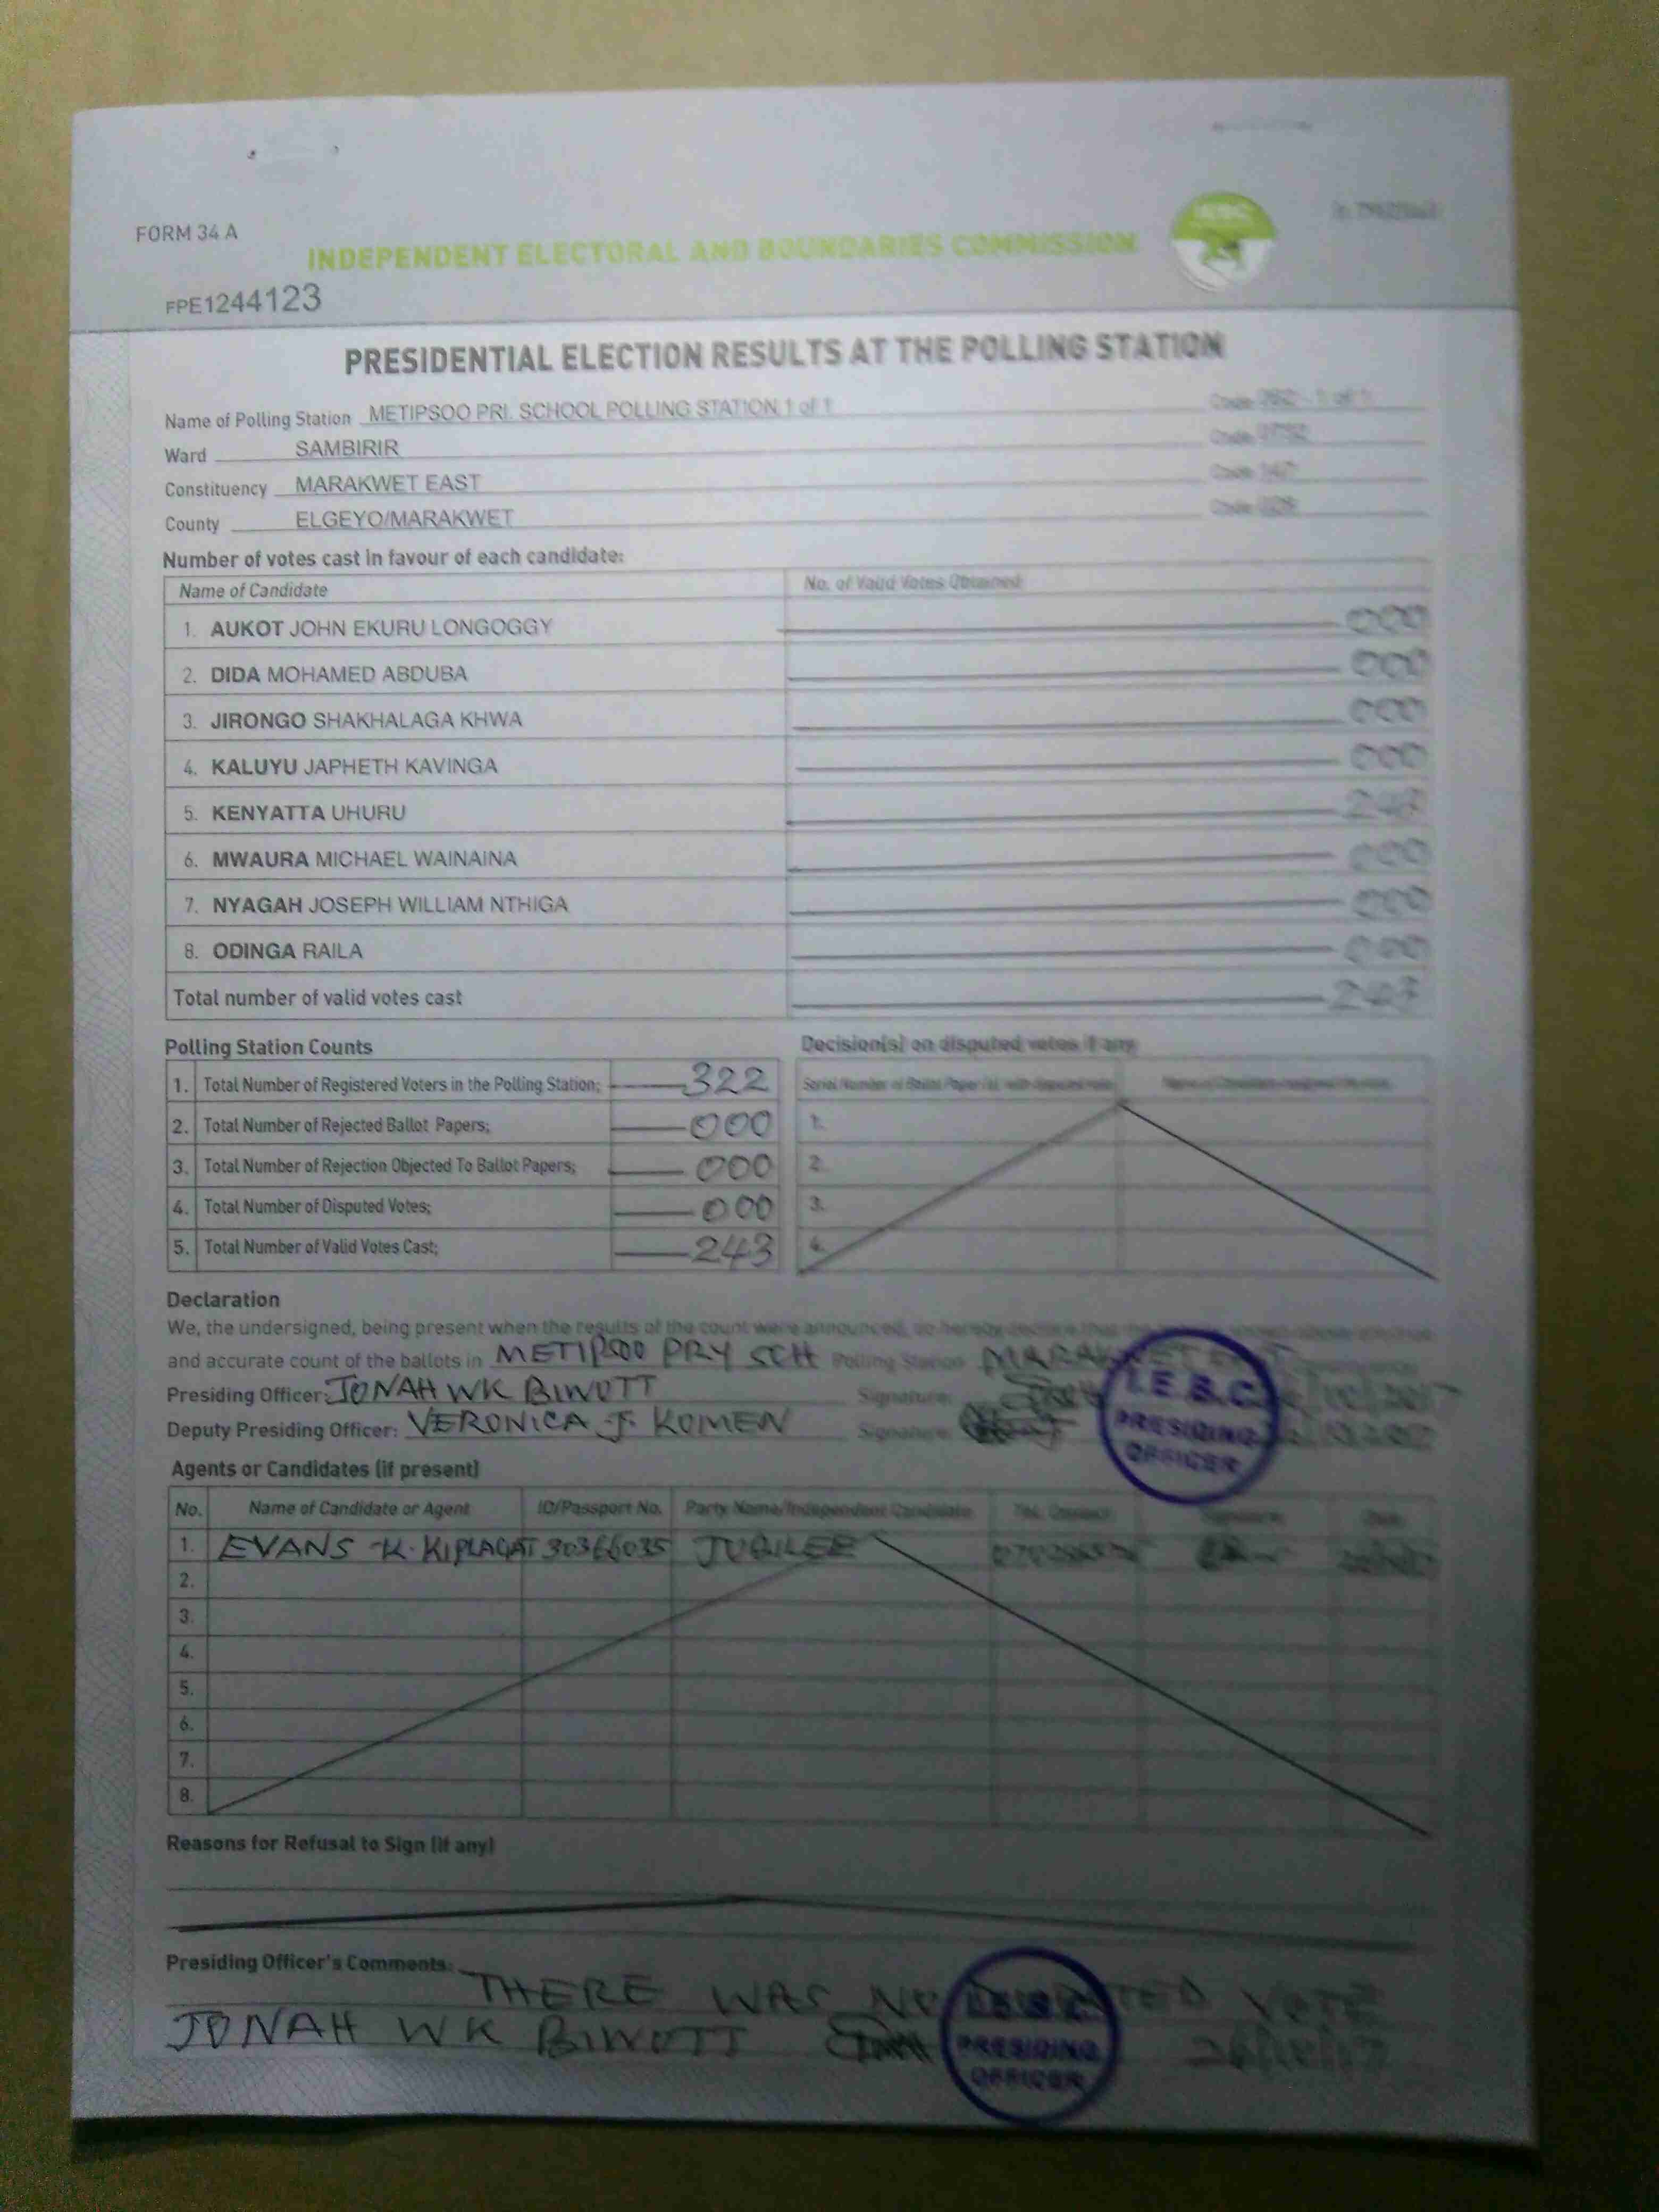 FORM 34 A
INDEPENDENT ELECTORAL AND BOUNDARIES COMMISSION
FPE1244123
PRESIDENTIAL ELECTION RESULTS AT THE POLLING STATION
Name of Polling Station METIPSOO PRI. SCHOOL POLLING STATION 1 of 1 Code 1 of 1
Ward SAMBIRIR Code
Constituency MARAKWET EAST Code
County ELGEYO/MARAKWET Code
Number of votes cast in favour of each candidate:
Name of Candidate No. of Valid Votes Obtained
1. AUKOT JOHN EKURU LONGOGGY 000
2. DIDA MOHAMED ABDUBA 000
3. JIRONGO SHAKHALAGA KHWA 000
4. KALUYU JAPHETH KAVINGA 000
5. KENYATTA UHURU 243
6. MWAURA MICHAEL WAINAINA 000
7. NYAGAH JOSEPH WILLIAM NTHIGA 000
8. ODINGA RAILA 000
Total number of valid votes cast 243
Polling Station Counts
1. Total Number of Registered Voters in the Polling Station; 322
2. Total Number of Rejected Ballot Papers; 000
3. Total Number of Rejection Objected To Ballot Papers; 000
4. Total Number of Disputed Votes; 000
5. Total Number of Valid Votes Cast; 243
Decision(s) on disputed votes if any
1.
2.
3.
4.
Declaration
We, the undersigned, being present when the results of the count were announced, do hereby declare that the
and accurate count of the ballots in METIPSOO PRY SCH Polling Station MARAKWET EAST
Presiding Officer: JONAH WK BIWOTT Signature:
Deputy Presiding Officer: VERONICA J. KOMEN Signature:
I.E.B.C.
PRESIDING
OFFICER
Agents or Candidates (if present)
No. Name of Candidate or Agent ID/Passport No. Party Name/Independent Candidate
1. EVANS K. KIPLAGAT 30366035 JUBILEE
2.
3.
4.
5.
6.
7.
8.
Reasons for Refusal to Sign (if any)
Presiding Officer's Comments: THERE WAS NO DISPUTED VOTE
JONAH WK BIWOTT
I.E.B.C.
PRESIDING
OFFICER